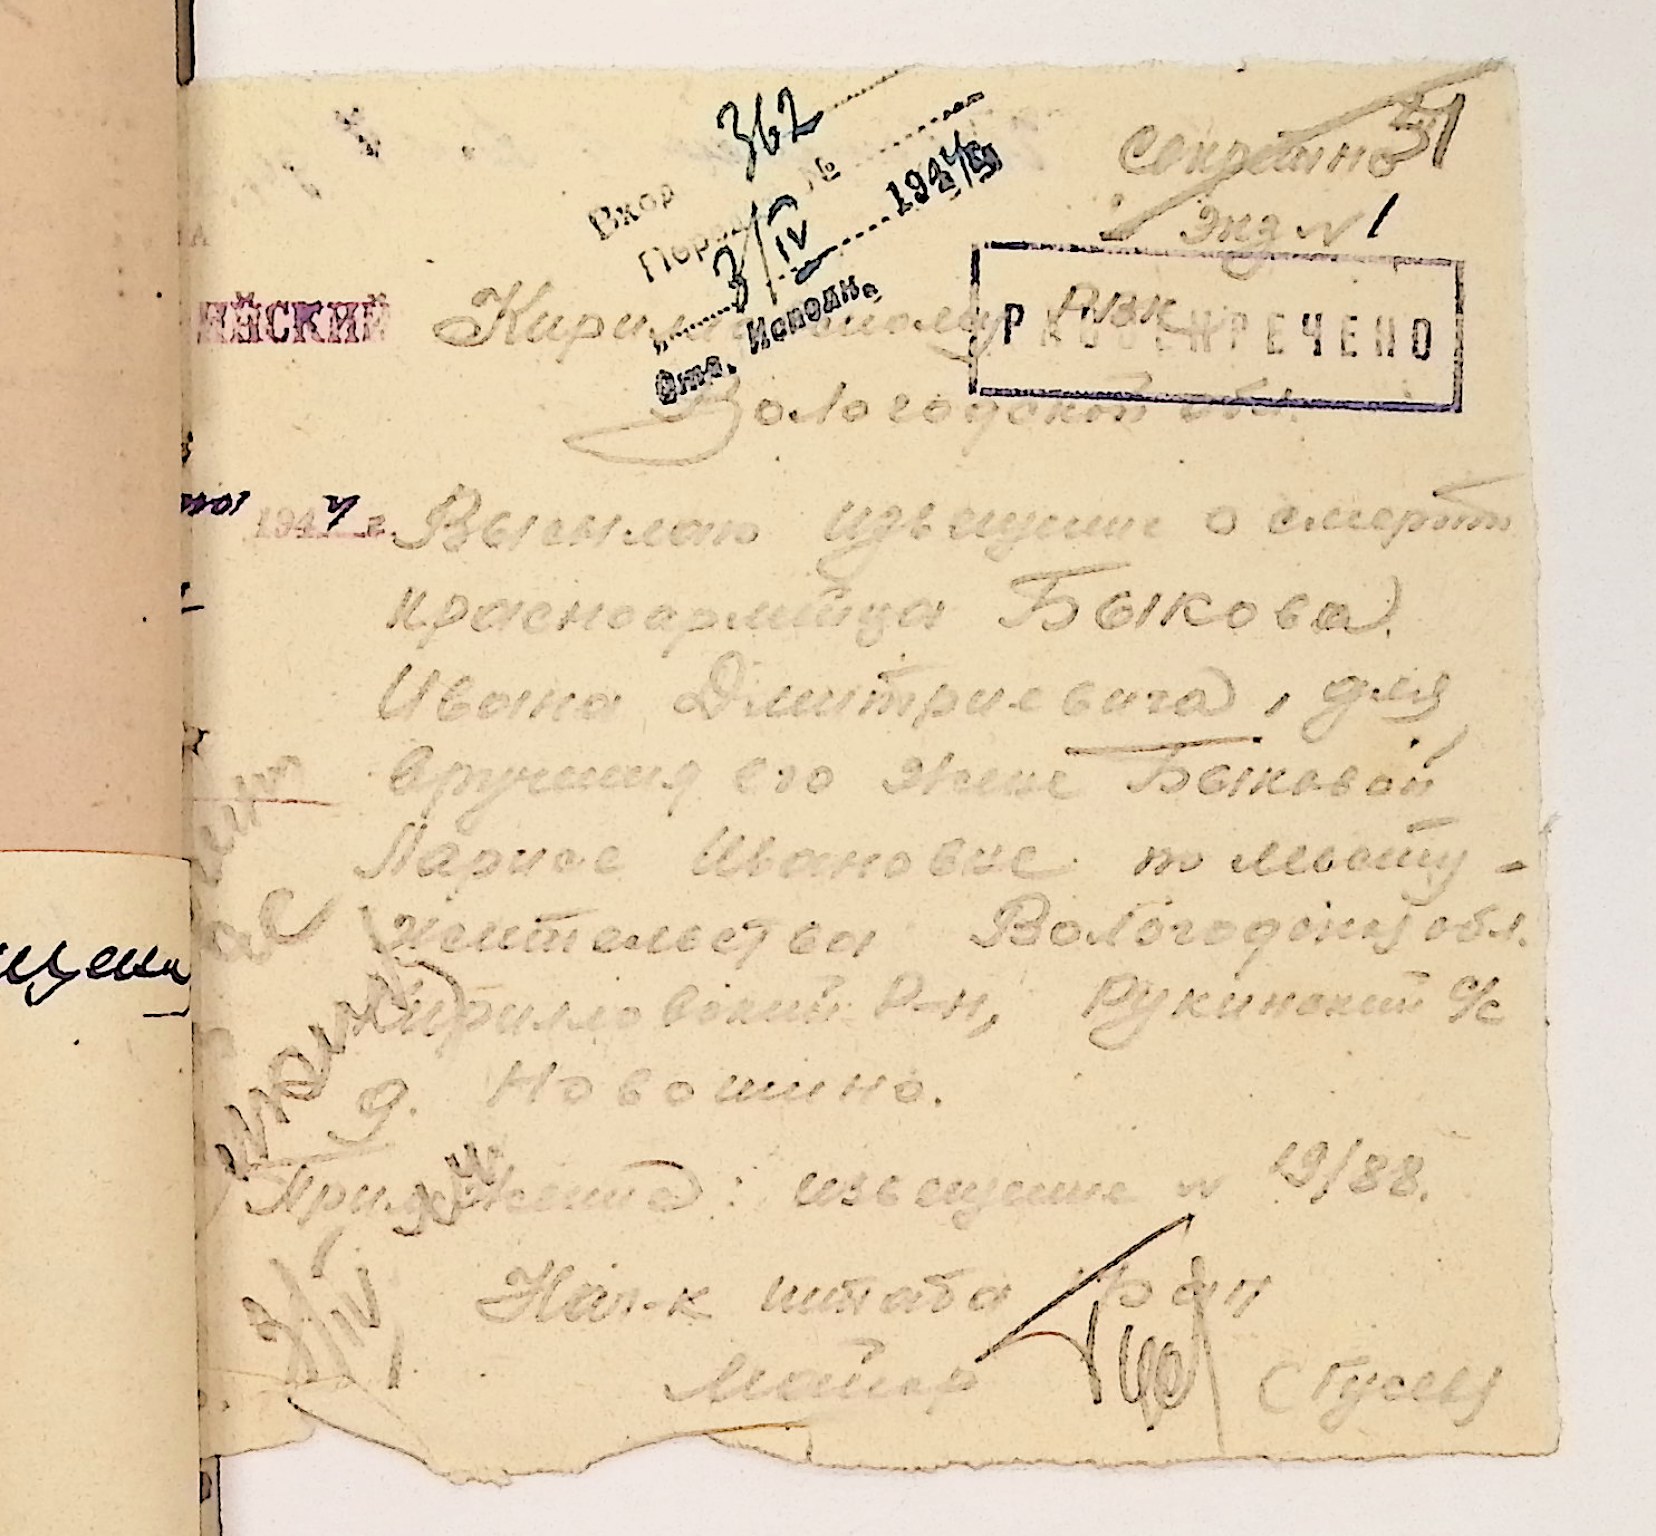 362
Вход
Секретно 51
Перед №
Экз № 1
3/IV 194
Отд. Исполн.
ЙСКИЙ
Кирилловскому РВК
РАССЕКРЕЧЕНО
Вологодской обл.
1944 г.
Высылаю извещение о смерти
красноармейца Быкова
Ивана Дмитриевича, для
вручения его жене Быковой
Ларисе Ивановне по месту-
жительства Вологодская обл.
Кирилловский Р-н, Рукинский с/с
д. Новошино.
Приложение: извещение № 19/88.
3/IV
Нач-к штаба
Майор (Гусец
щени